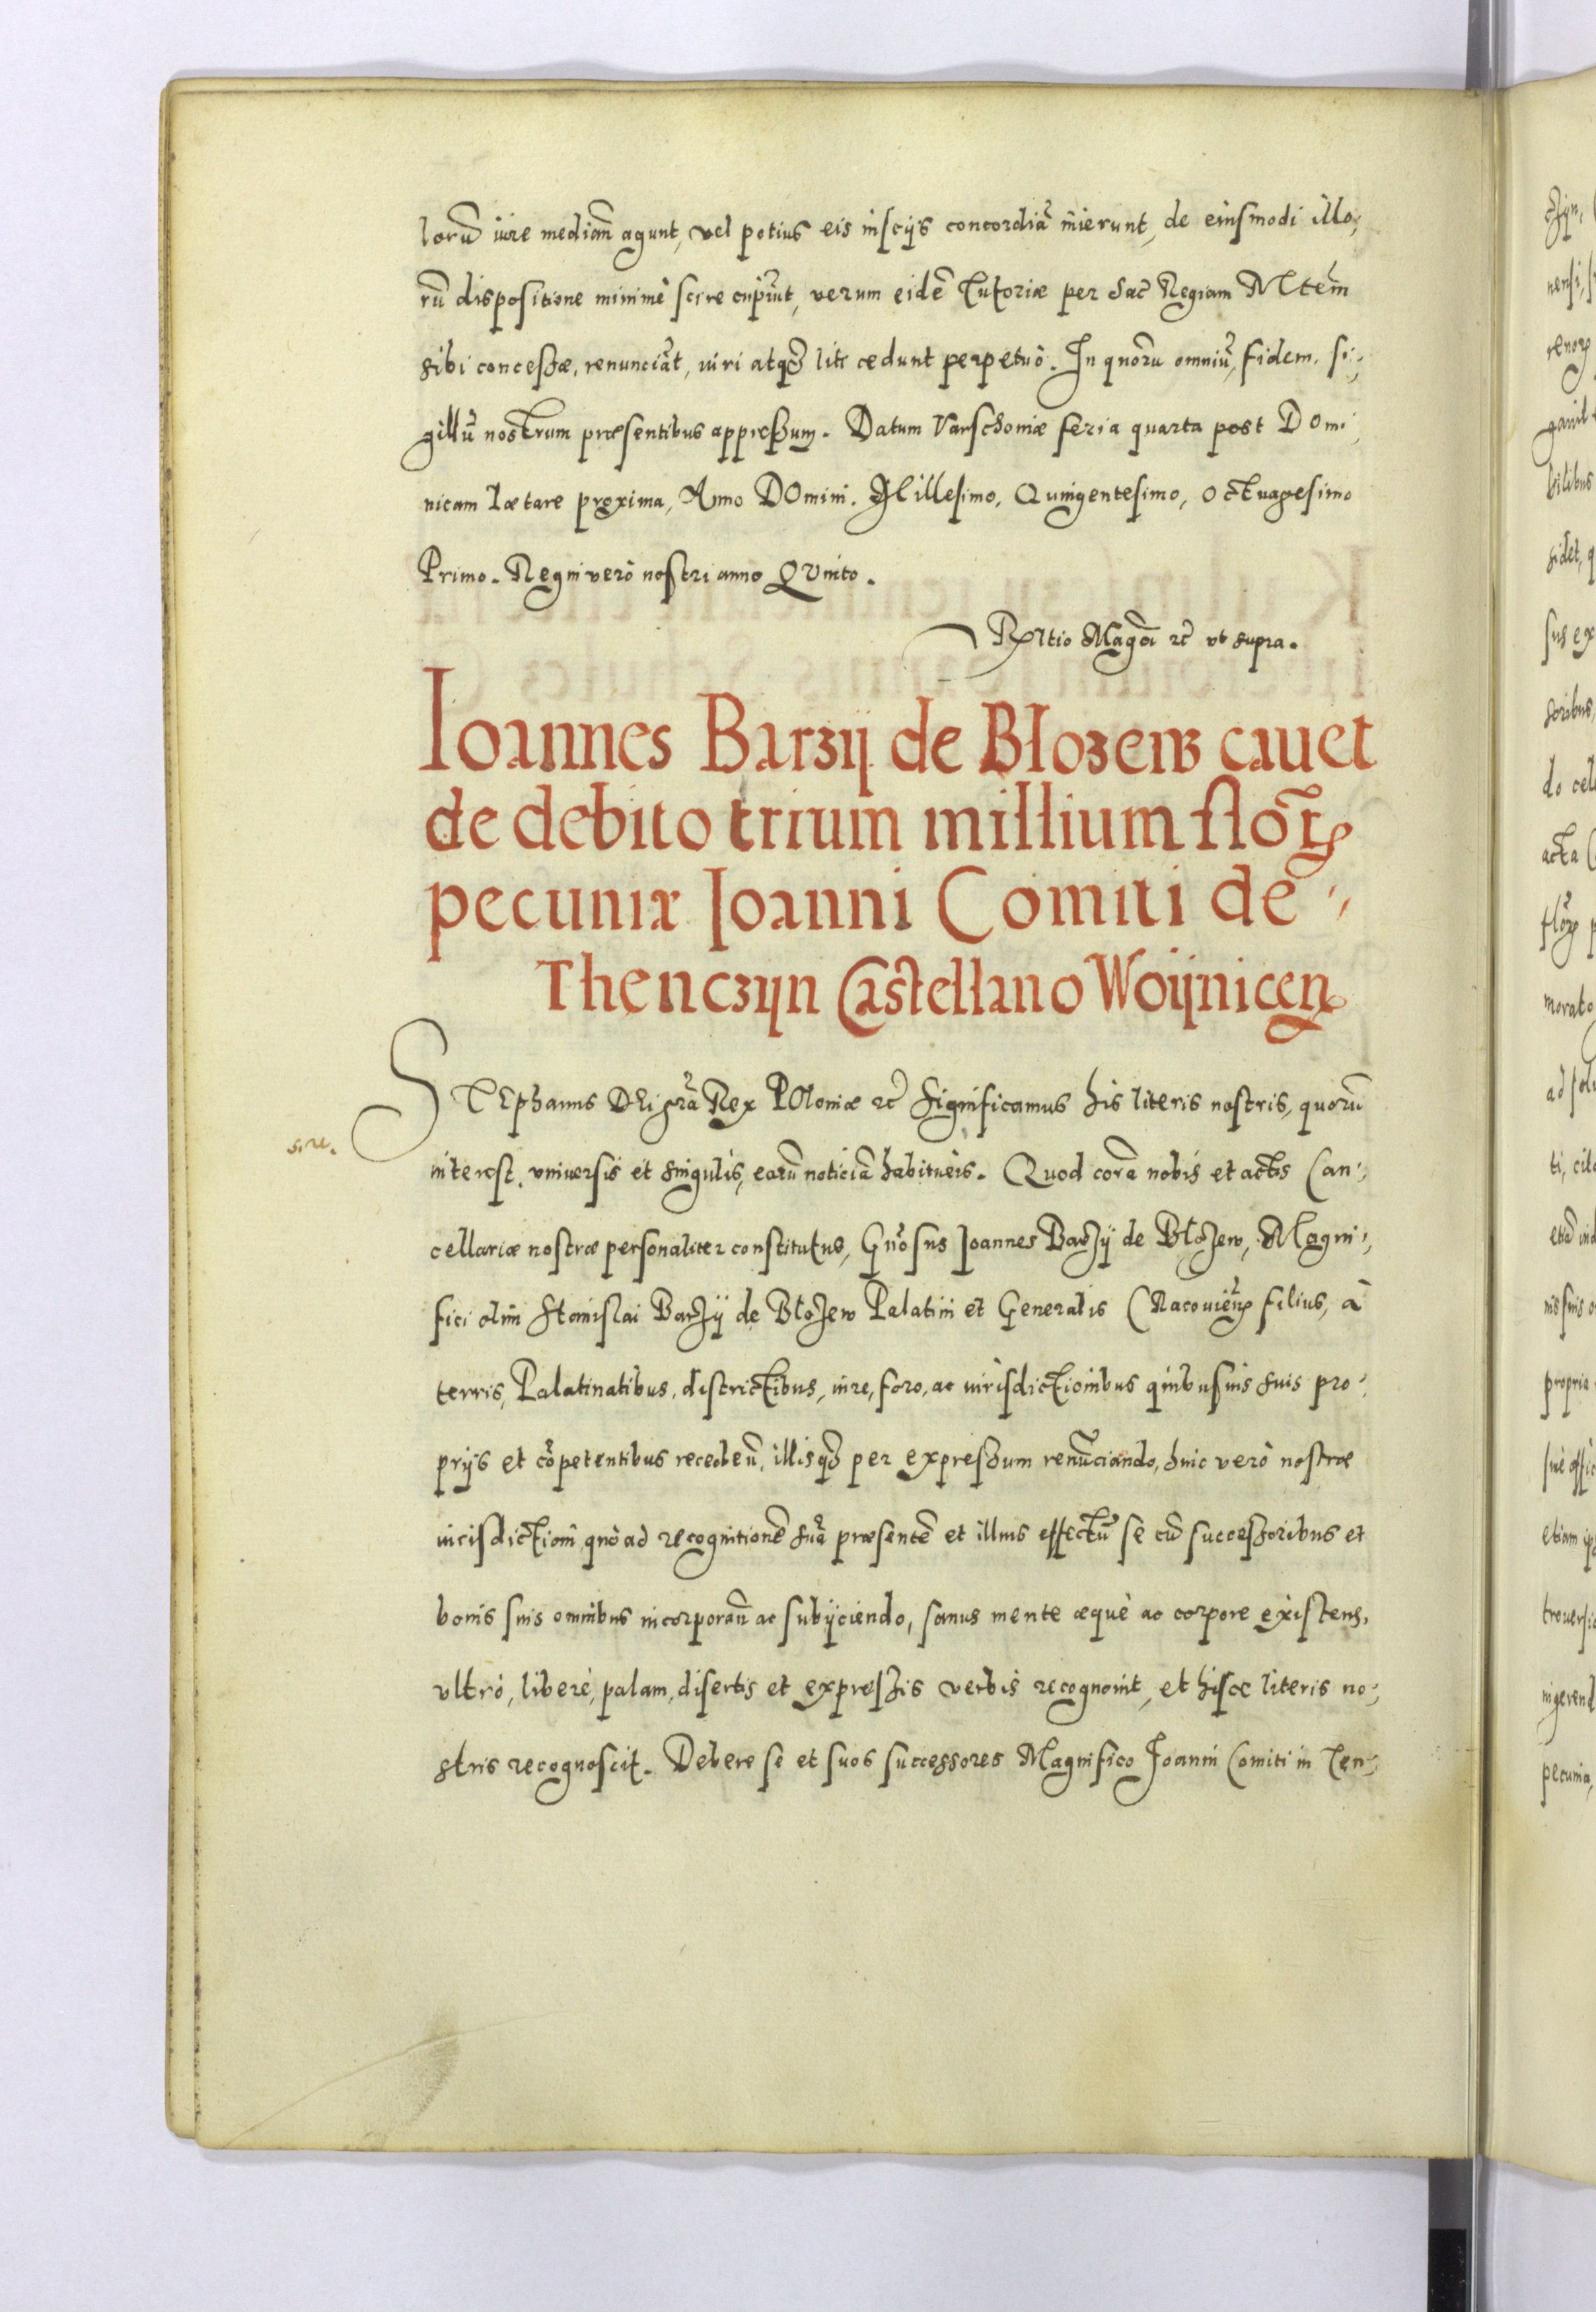 lorũ iure mediam̃ agunt, vel potius eis insciis concordiã inierunt, de eiusmodi illo,
rũ dispositione minimè scire cupiũt, verum eidẽ Tutoriæ per Sac̃ Regiam Mtem̃
sibi concessæ, renunciãt, iuri atq̃ liti cedunt perpetuò. In quorũ omniũ, fidem, si,
gillũ nostrum præsentibus appressum. Datum Varschoniæ feria quarta post DOmi,
nicam Lætare proxima, Anno DOmini. Millesimo, Quingentesimo, Octuagesimo
Primo. Regni verò nostri anno QVinto.
Rltio Magci ꝛc̃ vt supra.
Ioannes Barzij de Błozew cauet
de debito trium millium flor̃
pecuniæ Ioanni Comiti de
Thenczijn Castellano Woijnicen
STEphanus DEi grã Rex POloniæ ꝛc̃ Significamus his literis nostris, quorũ
interest, vniuersis et singulis, earũ noticiã habituris. Quod corã nobis et actis Can,
cellariæ nostræ personaliter constitutus, Gñosus Ioannes Barzij de Błozew, Magni,
fici olim Stanislai Barzij de Błozew Palatini et Generalis Cracouieñ filius, à
terris, Palatinatibus, districtibus, iure, foro, ac iurisdictionibus quibusuis suis pro,
prijs et cõpetentibus recedeñ, illisq̃ per expressum renũciando, huic verò nostræ
iurisdictioni quò ad recognitionẽ suã præsentẽ et illius effectũ se cũ successoribus et
bonis suis omnibus incorporañ ac subijciendo, sanus mente æquè ac corpore existens,
vltrò, liberè, palam, disertis et expressis verbis recognouit, et hisce literis no,
stris recognoscit. Debere se et suos successores Magnifico Ioanni Comiti in Ten,